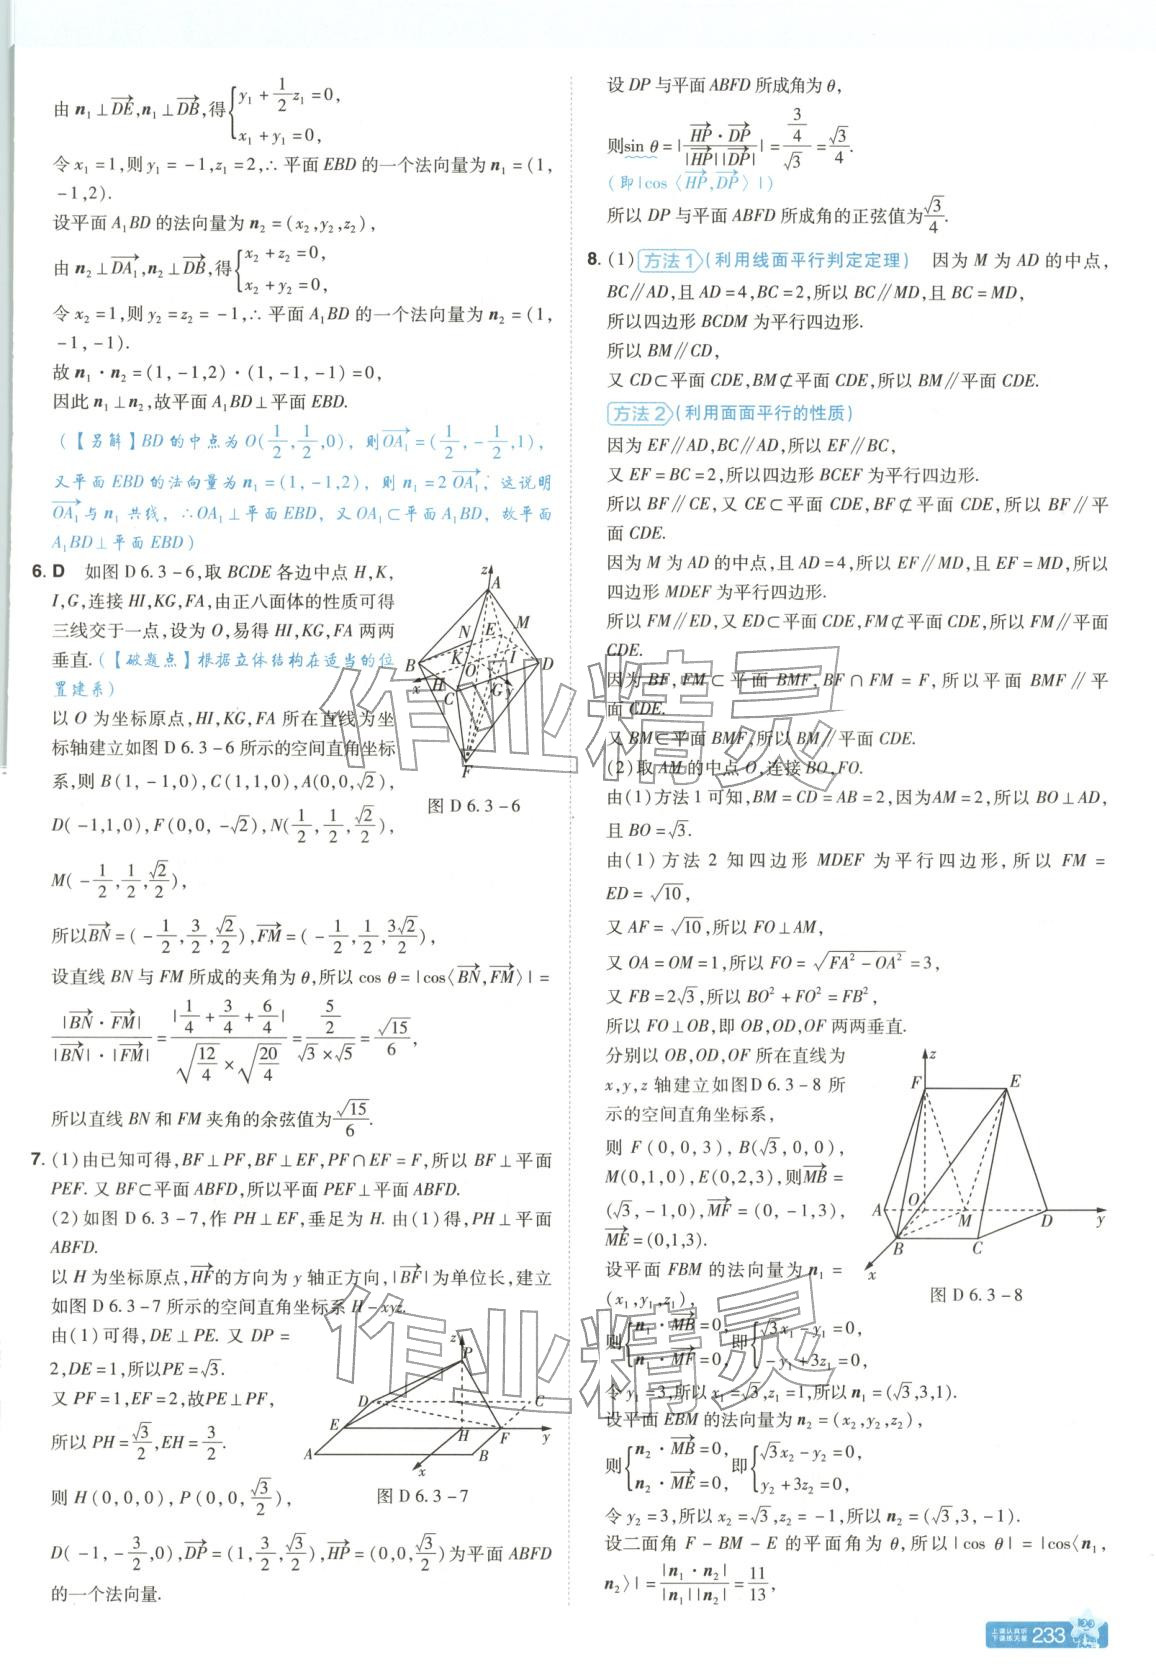 由 n₁⊥DE→,n₁⊥DB→,得{y₁+1/2z₁=0,
x₁+y₁=0,
令 x₁=1,则 y₁=-1,z₁=2,∴平面 EBD 的一个法向量为 n₁=(1,
-1,2).
设平面 A₁BD 的法向量为 n₂=(x₂,y₂,z₂),
由 n₂⊥DA₁→,n₂⊥DB→,得{x₂+z₂=0,
x₂+y₂=0,
令 x₂=1,则 y₂=z₂=-1,∴平面 A₁BD 的一个法向量为 n₂=(1,
-1,-1).
故 n₁·n₂=(1,-1,2)·(1,-1,-1)=0,
因此 n₁⊥n₂,故平面 A₁BD⊥平面 EBD.
(【另解】BD 的中点为 O(1/2,1/2,0),则OA₁→=(1/2,-1/2,1),
又平面 EBD 的法向量为 n₁=(1,-1,2),则 n₁=2OA₁→,这说明
OA₁→与 n₁ 共线,∴OA₁⊥平面 EBD,又 OA₁⊂平面 A₁BD,故平面
A₁BD⊥平面 EBD)
6. D 如图 D 6.3-6,取 BCDE 各边中点 H,K,
I,G,连接 HI,KG,FA,由正八面体的性质可得
三线交于一点,设为 O,易得 HI,KG,FA 两两
垂直.(【破题点】根据立体结构在适当的位
置建系)
以 O 为坐标原点,HI,KG,FA 所在直线为坐
标轴建立如图 D 6.3-6 所示的空间直角坐标
系,则 B(1,-1,0),C(1,1,0),A(0,0,√2),
D(-1,1,0),F(0,0,-√2),N(1/2,1/2,√2/2),
M(-1/2,1/2,√2/2),
z A M N E K I B O D H G x C y F
图 D 6.3-6
所以BN→=(-1/2,3/2,√2/2),FM→=(-1/2,1/2,3√2/2),
设直线 BN 与 FM 所成的夹角为 θ,所以 cos θ=|cos⟨BN→,FM→⟩|=
|BN→·FM→|/(|BN→|·|FM→|)=|1/4+3/4+6/4|/(√(12/4)×√(20/4))=(5/2)/(√3×√5)=√15/6,
所以直线 BN 和 FM 夹角的余弦值为√15/6.
7. (1)由已知可得,BF⊥PF,BF⊥EF,PF∩EF=F,所以 BF⊥平面
PEF. 又 BF⊂平面 ABFD,所以平面 PEF⊥平面 ABFD.
(2)如图 D 6.3-7,作 PH⊥EF,垂足为 H. 由(1)得,PH⊥平面
ABFD.
以 H 为坐标原点,HF→的方向为 y 轴正方向,|BF→|为单位长,建立
如图 D 6.3-7 所示的空间直角坐标系 H-xyz.
由(1)可得,DE⊥PE. 又 DP=
2,DE=1,所以PE=√3.
又 PF=1,EF=2,故PE⊥PF,
所以 PH=√3/2,EH=3/2.
则 H(0,0,0),P(0,0,√3/2),
z P D C E H F y A B x
图 D 6.3-7
D(-1,-3/2,0),DP→=(1,3/2,√3/2),HP→=(0,0,√3/2)为平面 ABFD
的一个法向量.
设 DP 与平面 ABFD 所成角为 θ,
则sin θ=|HP→·DP→/(|HP→||DP→|)|=(3/4)/√3=√3/4.
(即|cos⟨HP→,DP→⟩|)
所以 DP 与平面 ABFD 所成角的正弦值为√3/4.
8. (1)方法1(利用线面平行判定定理) 因为 M 为 AD 的中点,
BC∥AD,且 AD=4,BC=2,所以 BC∥MD,且 BC=MD,
所以四边形 BCDM 为平行四边形.
所以 BM∥CD,
又 CD⊂平面 CDE,BM⊄平面 CDE,所以 BM∥平面 CDE.
方法2(利用面面平行的性质)
因为 EF∥AD,BC∥AD,所以 EF∥BC,
又 EF=BC=2,所以四边形 BCEF 为平行四边形.
所以 BF∥CE,又 CE⊂平面 CDE,BF⊄平面 CDE,所以 BF∥平
面 CDE.
因为 M 为 AD 的中点,且 AD=4,所以 EF∥MD,且 EF=MD,所以
四边形 MDEF 为平行四边形.
所以 FM∥ED,又 ED⊂平面 CDE,FM⊄平面 CDE,所以 FM∥平面
CDE.
因为 BF,FM⊂平面 BMF,BF∩FM=F,所以平面 BMF∥平
面 CDE.
又 BM⊂平面 BMF,所以 BM∥平面 CDE.
(2)取 AM 的中点 O,连接 BO,FO.
由(1)方法 1 可知,BM=CD=AB=2,因为AM=2,所以 BO⊥AD,
且 BO=√3.
由(1)方法 2 知四边形 MDEF 为平行四边形,所以 FM=
ED=√10,
又 AF=√10,所以 FO⊥AM,
又 OA=OM=1,所以 FO=√(FA²-OA²)=3,
又 FB=2√3,所以 BO²+FO²=FB²,
所以 FO⊥OB,即 OB,OD,OF 两两垂直.
分别以 OB,OD,OF 所在直线为
x,y,z 轴建立如图D 6.3-8 所
示的空间直角坐标系,
则 F(0,0,3),B(√3,0,0),
M(0,1,0),E(0,2,3),则MB→=
(√3,-1,0),MF→=(0,-1,3),
ME→=(0,1,3).
z F E A O M D y B C x
图 D 6.3-8
设平面 FBM 的法向量为 n₁=
(x₁,y₁,z₁),
则{n₁·MB→=0,即{√3x₁-y₁=0,
n₁·MF→=0,-y₁+3z₁=0,
令 y₁=3,所以 x₁=√3,z₁=1,所以 n₁=(√3,3,1).
设平面 EBM 的法向量为 n₂=(x₂,y₂,z₂),
则{n₂·MB→=0,即{√3x₂-y₂=0,
n₂·ME→=0,y₂+3z₂=0,
令 y₂=3,所以 x₂=√3,z₂=-1,所以 n₂=(√3,3,-1).
设二面角 F-BM-E 的平面角为 θ,所以|cos θ|=|cos⟨n₁,
n₂⟩|=|n₁·n₂|/(|n₁||n₂|)=11/13,
作业精灵
作业精灵
上课认真听
下课练天星
233